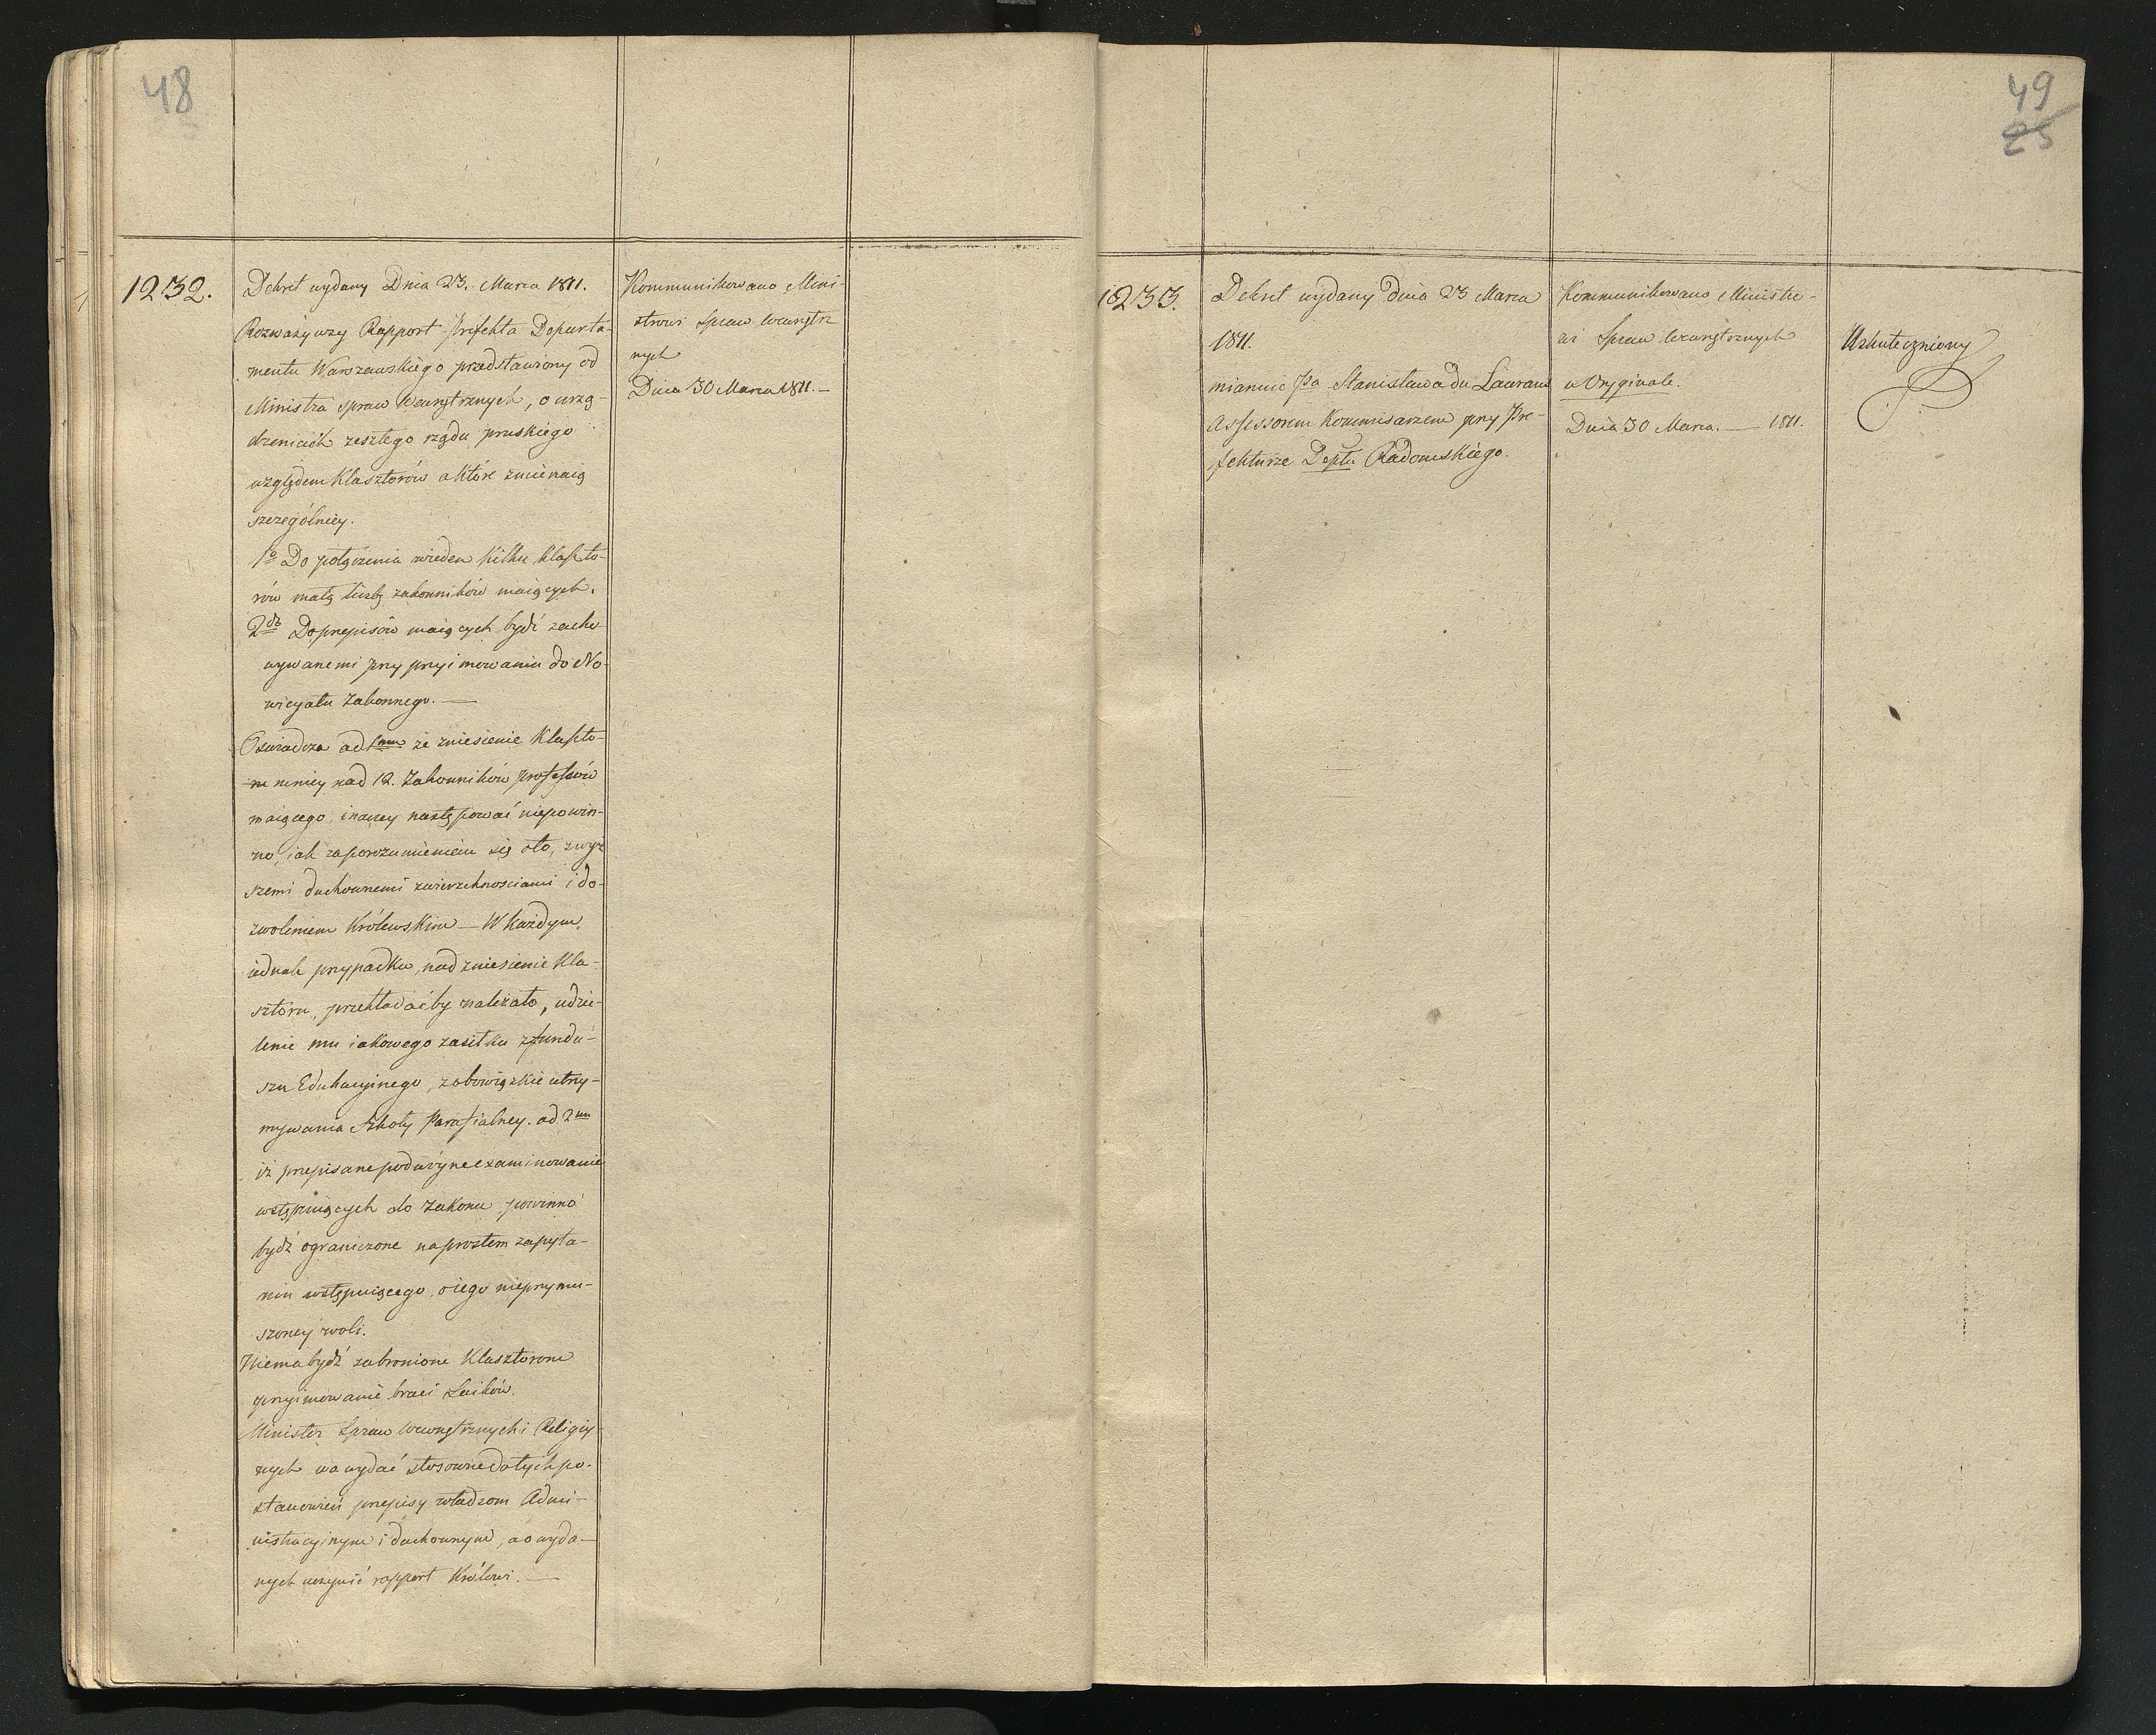 48
1232.
Dekret wydany Dnia 23. Marca 1811.
Rozważywszy Rapport Prefekta Departa-
mentu Warszawskiego przedstawiony od
Ministra spraw Wewnętrznych, o urzą-
dzeniach zeszłego rządu pruskiego
względem Klasztorów a które zmierzaią
szczególniey.
1o Do połączenia wieden kilku klaszto-
rów małą liczbę zakonników maiących.
2do Do przepisów maiących bydź zacho-
wywanemi przy przyimowaniu do No-
wicyatu Zakonnego. —
Oswiadcza ad 1mum że zniesienie Klaszto-
ru mniey nad 12. Zakonników professów
maiącego, inaczey następować niepowin-
no, iak za porozumieniem się oto, z wyż
szemi duchownemi zwierzchnosciami i do-
zwoleniem Królewskim — W każdym
iednak przypadku, nad zniesienie Kla-
sztoru, przekładać by należało, udzie-
lenie mu iakowego zasiłku z fundu-
szu Edukacyinego, z obowiązkie utrzy-
mywania Szkoły Parafialney. ad 2um
iż przepisane podwóyne examinowanie
wstępuiących do Zakonu powinno
bydź ograniczone na prostem zapyta-
niu wstępuiącego, o iego nieprzymu-
szoney woli.
Niema bydź zabronione Klasztorom
przyimowanie braci Laików.
Minister Spraw Wewnętrznych i Religiy-
nych ma wydać stosowne do tych po-
stanowień przepisy władzom Admi-
nistracyinym i duchownym, a o wyda-
nych uczynić rapport Królowi. —
Kommunikowano Mini-
strowi Spraw Wewnętrz
nych
Dnia 30 Marca 1811. —
49
25
1233.
Dekret wydany dnia 23 Marca
1811.
mianuie Pa Stanisława du Laurans
Assessorem Kommisarzem przy Pre-
fekturze Deptu Radomskiego.
Kommunikowano Ministro-
wi Spraw Wewnętrznych
w Oryginale.
Dnia 30 Marca. — 1811.
Uskuteczniony